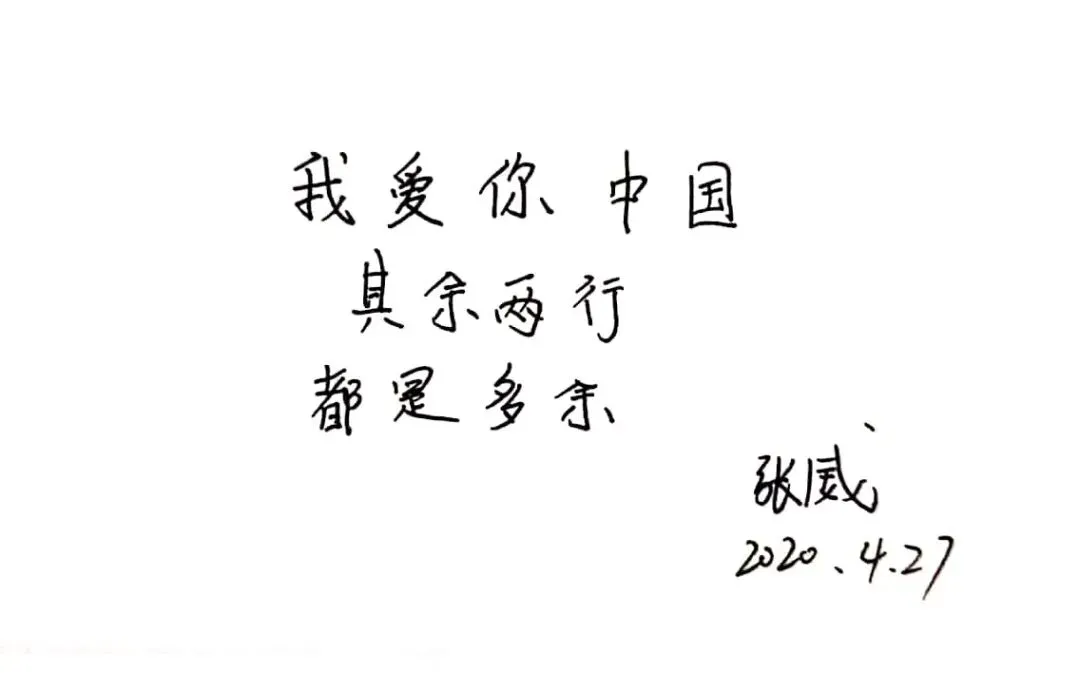 我爱你中国
其余两行
都是多余
张威
2020.4.27